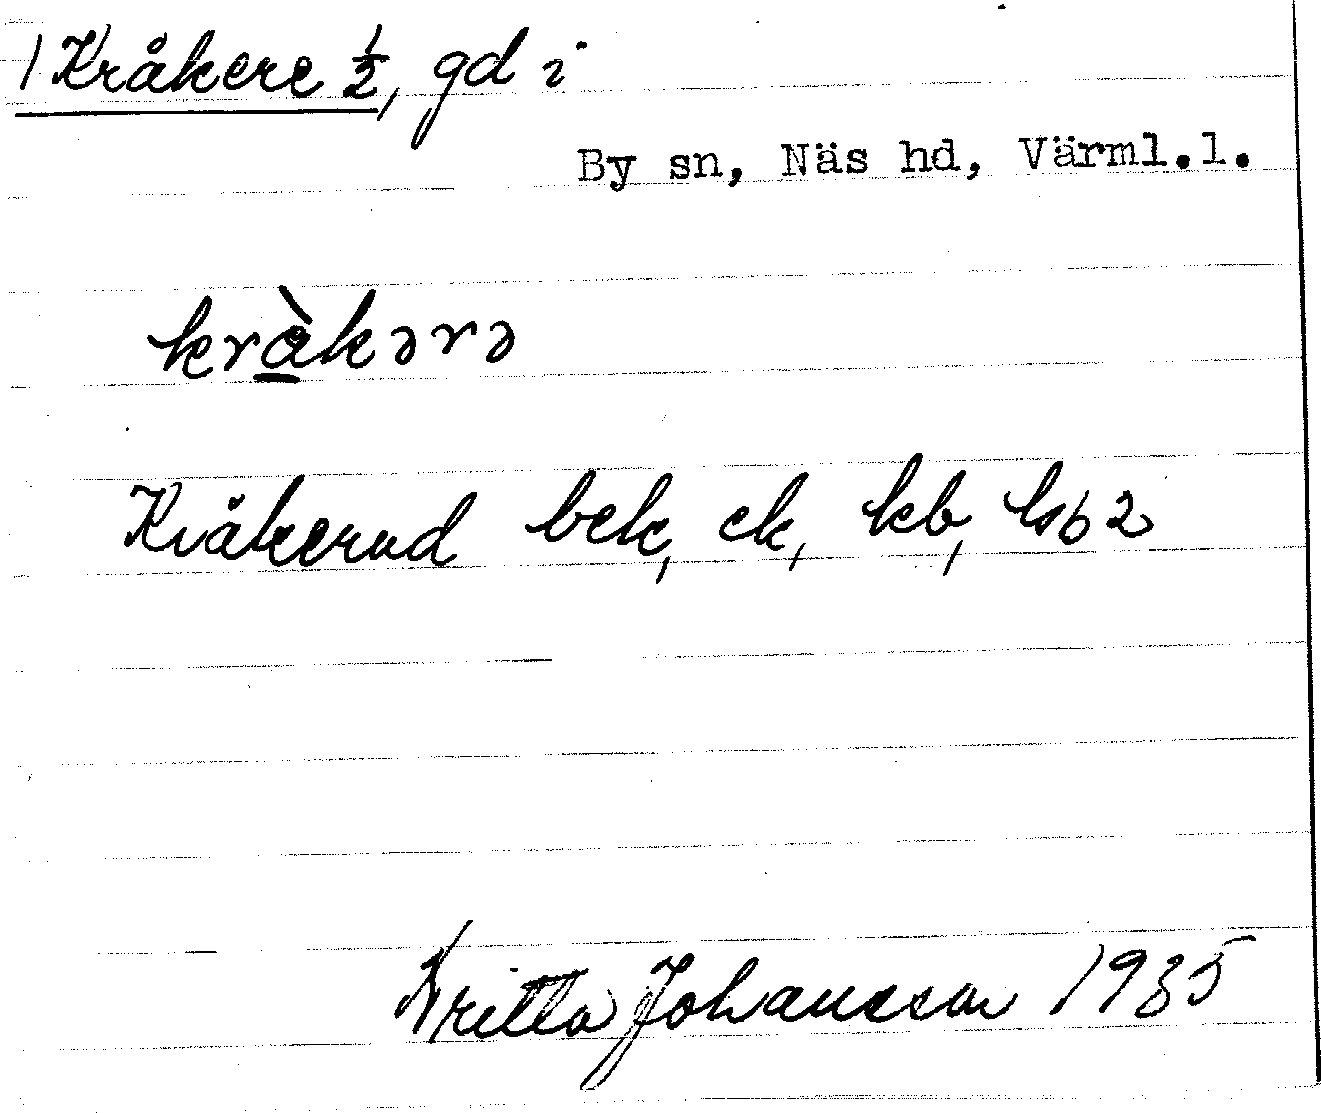 1 Kråkere ½, gd i
By sn, Näs hd, Värml.l.
kràkərə
Kråkerud bek, ek, kb, hsb 2
Britta Johansson 1935